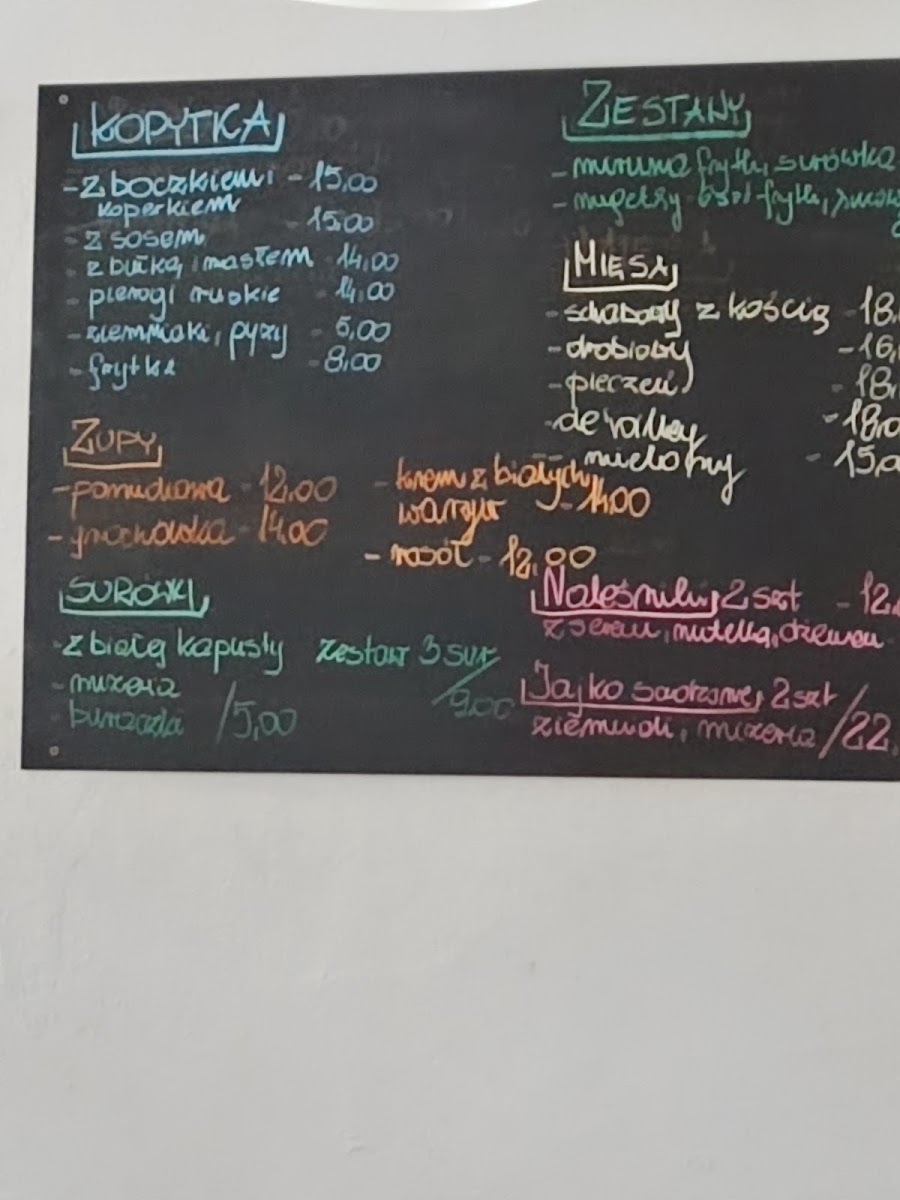 KOPYTKA
- z boczkiem i - 15,00
koperkiem
- z sosem - 15,00
- z bułką i masłem - 14,00
- pierogi ruskie - 14,00
- ziemniaki, pyzy - 6,00
- frytki - 8,00
ZUPY
- pomidorowa - 12,00
- grochowska - 14,00
- krem z białych
warzyw - 14,00
- rosół - 12,00
SURÓWKI
- z białej kapusty
- mizeria
- buraczki /5,00
zestaw 3 sur
/9,00
ZESTAWY
- miruna frytki, surówka
- nugetsy 6szt frytki,
MIĘSA
- schabowy z kością - 18,
- drobiowy - 16,
- pieczeń - 18,
- de volley - 18,0
- mielony - 15,0
Naleśniki, 2 szt - 12,
z serem, nutellą, dżemem
Jajko sadzone, 2szt
ziemniaki, mizeria /22,